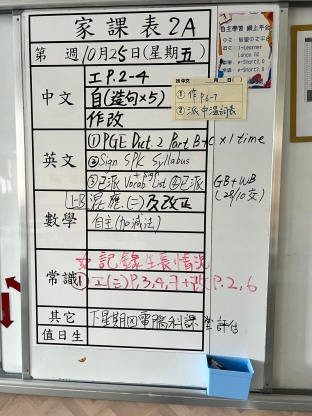 家課表2A
第 週10月25日(星期五)
自主學習 網上平台
1-Learner
e-Smart2.0
中文
工P.2-4
自(造句×5)
作改
①作P6-7
②派中溫詞表
英文
①PGE Dict. 2 Part B+C ×1 time
②Sign SPL Syllabus
③已派Vocab List ④已派
GB+WB
(28/10交)
數學
及改正
自主(加減法)
常識
記錄生長情況
①工(二)P.3,4,7+改P.2,6
其它
下星期四電腦科課堂評估
值日生